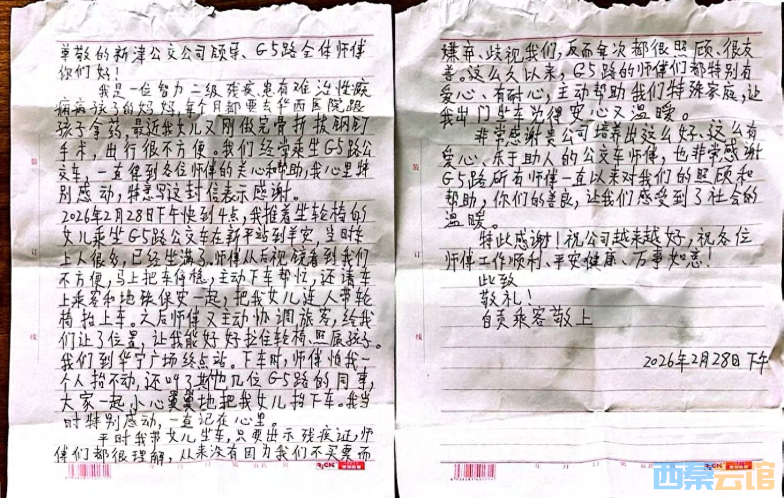 尊敬的新津公交公司领导、G5路全体师傅
你们好！
我是一位智力二级残疾患有难治性癫
痫病孩子的妈妈,每个月都要去华西医院跟
孩子拿药,最近我女儿又刚做完骨折拔钢钉
手术，出行很不方便。我们经常乘坐G5路公
交车，一直得到各位师傅的关心和帮助,我心里特
别感动，特意写这封信表示感谢。
2026年2月28日下午快到4点,我推着坐轮椅的
女儿乘坐G5路公交车在新平站到羊安,当时车
上人很多,已经坐满了,师傅从后视镜看到我们
不方便,马上把车停稳,主动下车帮忙,还请车
上乘客和地铁保安一起,把我女儿连人带轮
椅抬上车。之后师傅又主动协调旅客,给我
们让了位置,让我能好好拉住轮椅、照顾孩子。
我们到华宁广场终点站。下车时,师傅怕我一
个人抬不动,还叫了其他几位G5路的同事,
大家一起小心翼翼地把我女儿抬下车。我当
时特别感动，一直记在心里。
平时我带女儿坐车,只要出示残疾证,师
傅们都很理解,从来没有因为我们不买票而
嫌弃、歧视我们,反而每次都很照顾、很友
善。这么久以来,G5路的师傅们都特别有
爱心、有耐心,主动帮助我们特殊家庭,让
我出门坐车觉得安心又温暖。
非常感谢贵公司培养出这么好、这么有
爱心、乐于助人的公交车师傅,也非常感谢
G5路所有师傅一直以来对我们的照顾和
帮助,你们的善良,让我们感受到了社会的
温暖。
特此感谢！祝公司越来越好,祝各位
师傅工作顺利、平安健康、万事如意！
此致
敬礼！
乘客敬上
2026年2月28日下午
装
订
线
装
订
线
西秦云馆